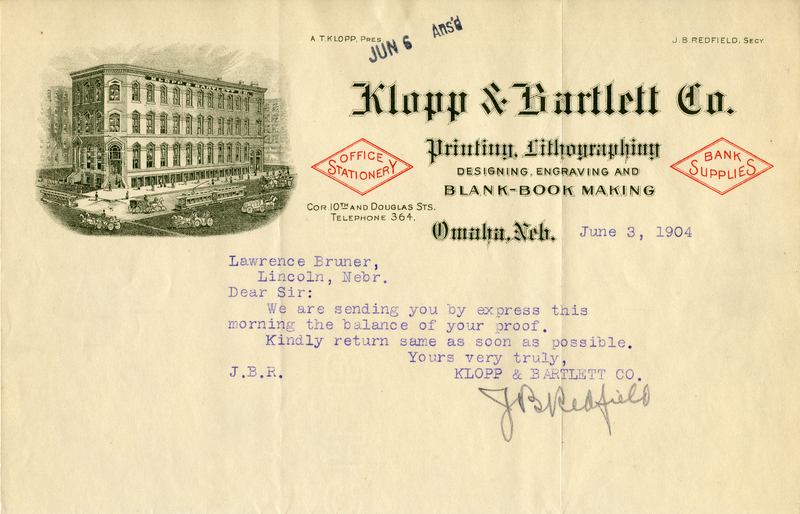 A.T. KLOPP, PRES
JUN 6 Ans'd
J.B. REDFIELD, SECY
Klopp & Bartlett Co.
Printing, Lithographing
DESIGNING, ENGRAVING AND
BLANK-BOOK MAKING
OFFICE
STATIONERY
BANK
SUPPLIES
COR. 10TH AND DOUGLAS STS.
TELEPHONE 364.
Omaha, Neb. June 3, 1904
Lawrence Bruner,
Lincoln, Nebr.
Dear Sir:
We are sending you by express this
morning the balance of your proof.
Kindly return same as soon as possible.
Yours very truly,
J.B.R. KLOPP & BARTLETT CO.
J B Redfield